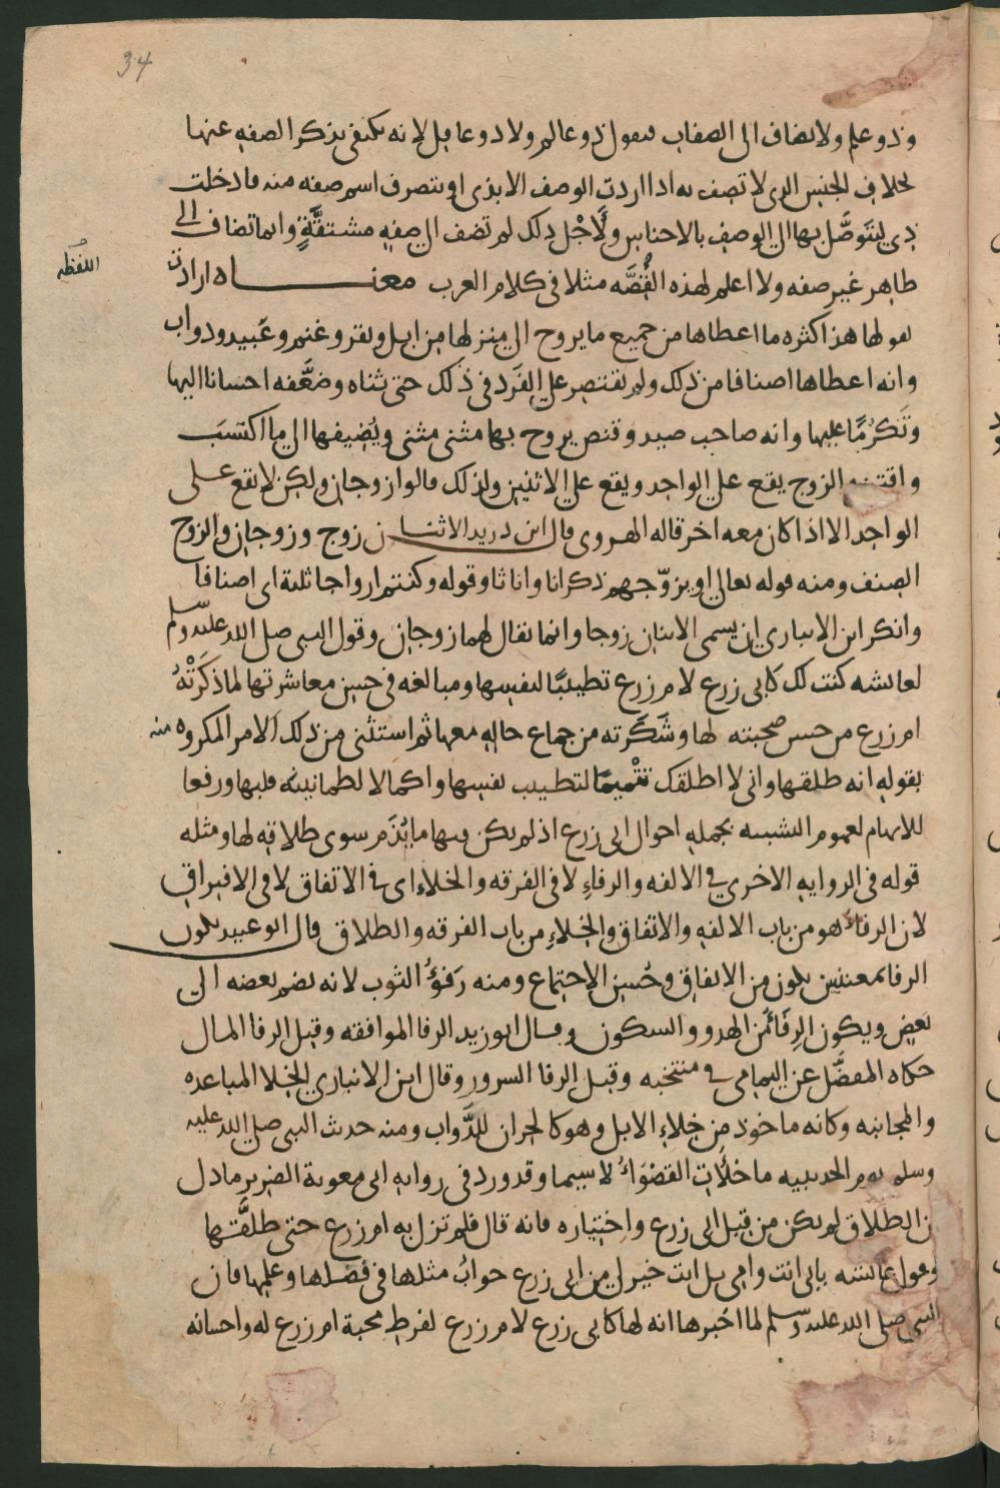 34
وذو علم ولا يضاف الى الصفات فيقول ذو عالم ولا ذو عاقل لانه يكتفى بذكر الصفه عنها
بخلاف الجنس الذى لا تصف به اذا اردت الوصف الا بذى او يتصرف اسم صفه منه فادخلت
ذى ليُتَوصَّل بها الى الوصف بالاجناس ولأَجْل ذلك لم تضف الى صفهٍ مشتقَّةٍ وانما تضاف الى
ظاهر غير صفه ولا اعلم لهذه القُصَّه مثلا فى كلام العرب معنـــاه ارادت
اللفظه
بقولها هذا كثره ما اعطاها من جميع ما يروح الى منزلها من ابل وبقر وغنم وعَبيد ودواب
وانه اعطاها اصنافا من ذلك ولم يقتصر على الفَرد فى ذلك حتى ثناه وضعَّفه احسانا اليها
وتَكَرُمًا عليها وانه صاحب صيد وقنص يروح بها مثنى مثنى ويُضيفها الى ما اكتسَب
واقتنـه الزوج يقع على الواحد ويقع على الاثنين ولذلك قالوا زوجان ولكن لا يقع علـى
الواحد الا اذا كان معه اخر قاله الهروى قال ابن دريد الاثنـان زوج وزوجان والزوج
الصنف ومنه قوله تعالى او يزوّجهم ذكرانا واناثا وقوله وكنتم ازواجا ثلثة اى اصنافا
وانكر ابن الانبارى ان يسمى الاثنان زوجا وانما يقال لهما زوجان وقول النبى صلى الله عليه وسلم
لعائشه كنت لك كابى زرع لام زرع تطييبًا لنفسها ومبالغه فى حسن معاشرتها لما ذكَرَتْهُ
ام زرع من حسن صحبته لها وشَكَرته من جماع حاله معها ثم استثنى من ذلك الامر المكروه منه
بقوله انه طلقها وانى لا اطلقك تتْميمًا لتطييب نفسها واكمالا لطمانينه قلبها ورفعا
للايهام لعموم التشبيه بجمله احوال ابى زرع اذ لم يكن فيها ما يُذَم سوى طلاقه لها ومثله
قوله فى الروايه الاخرى فى الالفه والرفاء لا فى الفرقه والخلاء اى فى الاتفاق لا فى الافتراق
لان الرفاءَ هو من باب الالفه والاتفاق والخلاء من باب الفرقه والطلاق قال ابو عبيد يكون
الرفا بمعنيين يكون من الاتفاق وحُسن الاجتماع ومنه رَفوُ الثوب لانه يضم بعضه الى
بعض ويكون الرِفَاءُ من الهدوء والسكون وقال ابو زيد الرفا الموافقه وقيل الرفا المـال
حكاه المفضَّل عن اليمامى فى منتخبه وقيل الرفا السرور وقال ابن الانبارى الخلا المباعده
والمجانبه وكانه ماخوذ من خلاءِ الابل وهو كالحران للدَّواب ومنه حديث النبى صلى الله عليه
وسلم يوم الحديبيه ما خلأَت القصْوَاءُ لا سيما وقد ورد فى روايه ابى معوية الضرير ما دل
ن الطلاق لم يكن من قبل ابى زرع واختياره فانه قال فلم تزل به ام زرع حتى طلقَّها
وقول عائشه بابى انت وامى بل انت خير لى من ابى زرع جوابُ مثلها فى فضلها وعلمها فان
النبى صلى الله عليه وسلم لما اخبرها انه لها كابى زرع لام زرع لفرط محبة ام زرع له واحسانه